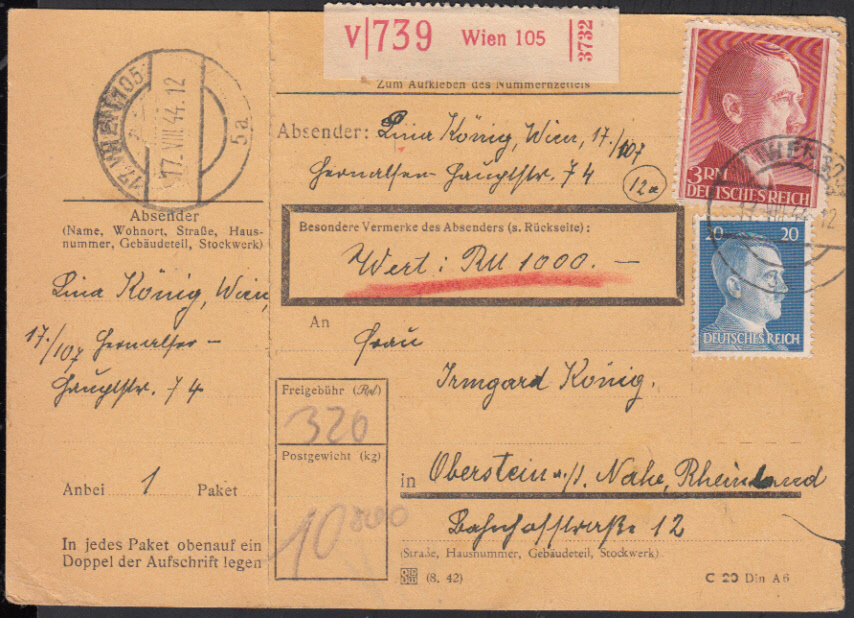 V 739 Wien 105 3732
Zum Aufkleben des Nummernzettels
17.VIII.44.12
5a
Absender: Lina König, Wien, 17./107
Hernalser-Hauptstr. 74
12a
3 RM
DEUTSCHES REICH
Absender
(Name, Wohnort, Straße, Haus-
nummer, Gebäudeteil, Stockwerk)
Besondere Vermerke des Absenders (s. Rückseite):
Wert: RM 1000.—
20 20
DEUTSCHES REICH
Lina König, Wien,
17./107 Hernalser-
Hauptstr. 74
An Frau
Irmgard König.
Freigebühr (Rpf)
320
Postgewicht (kg)
in Oberstein a./d. Nahe, Rheinland
Anbei 1 Paket
Bahnhofstraße 12
In jedes Paket obenauf ein
Doppel der Aufschrift legen
(Straße, Hausnummer, Gebäudeteil, Stockwerk)
(8. 42)
C 20 Din A6